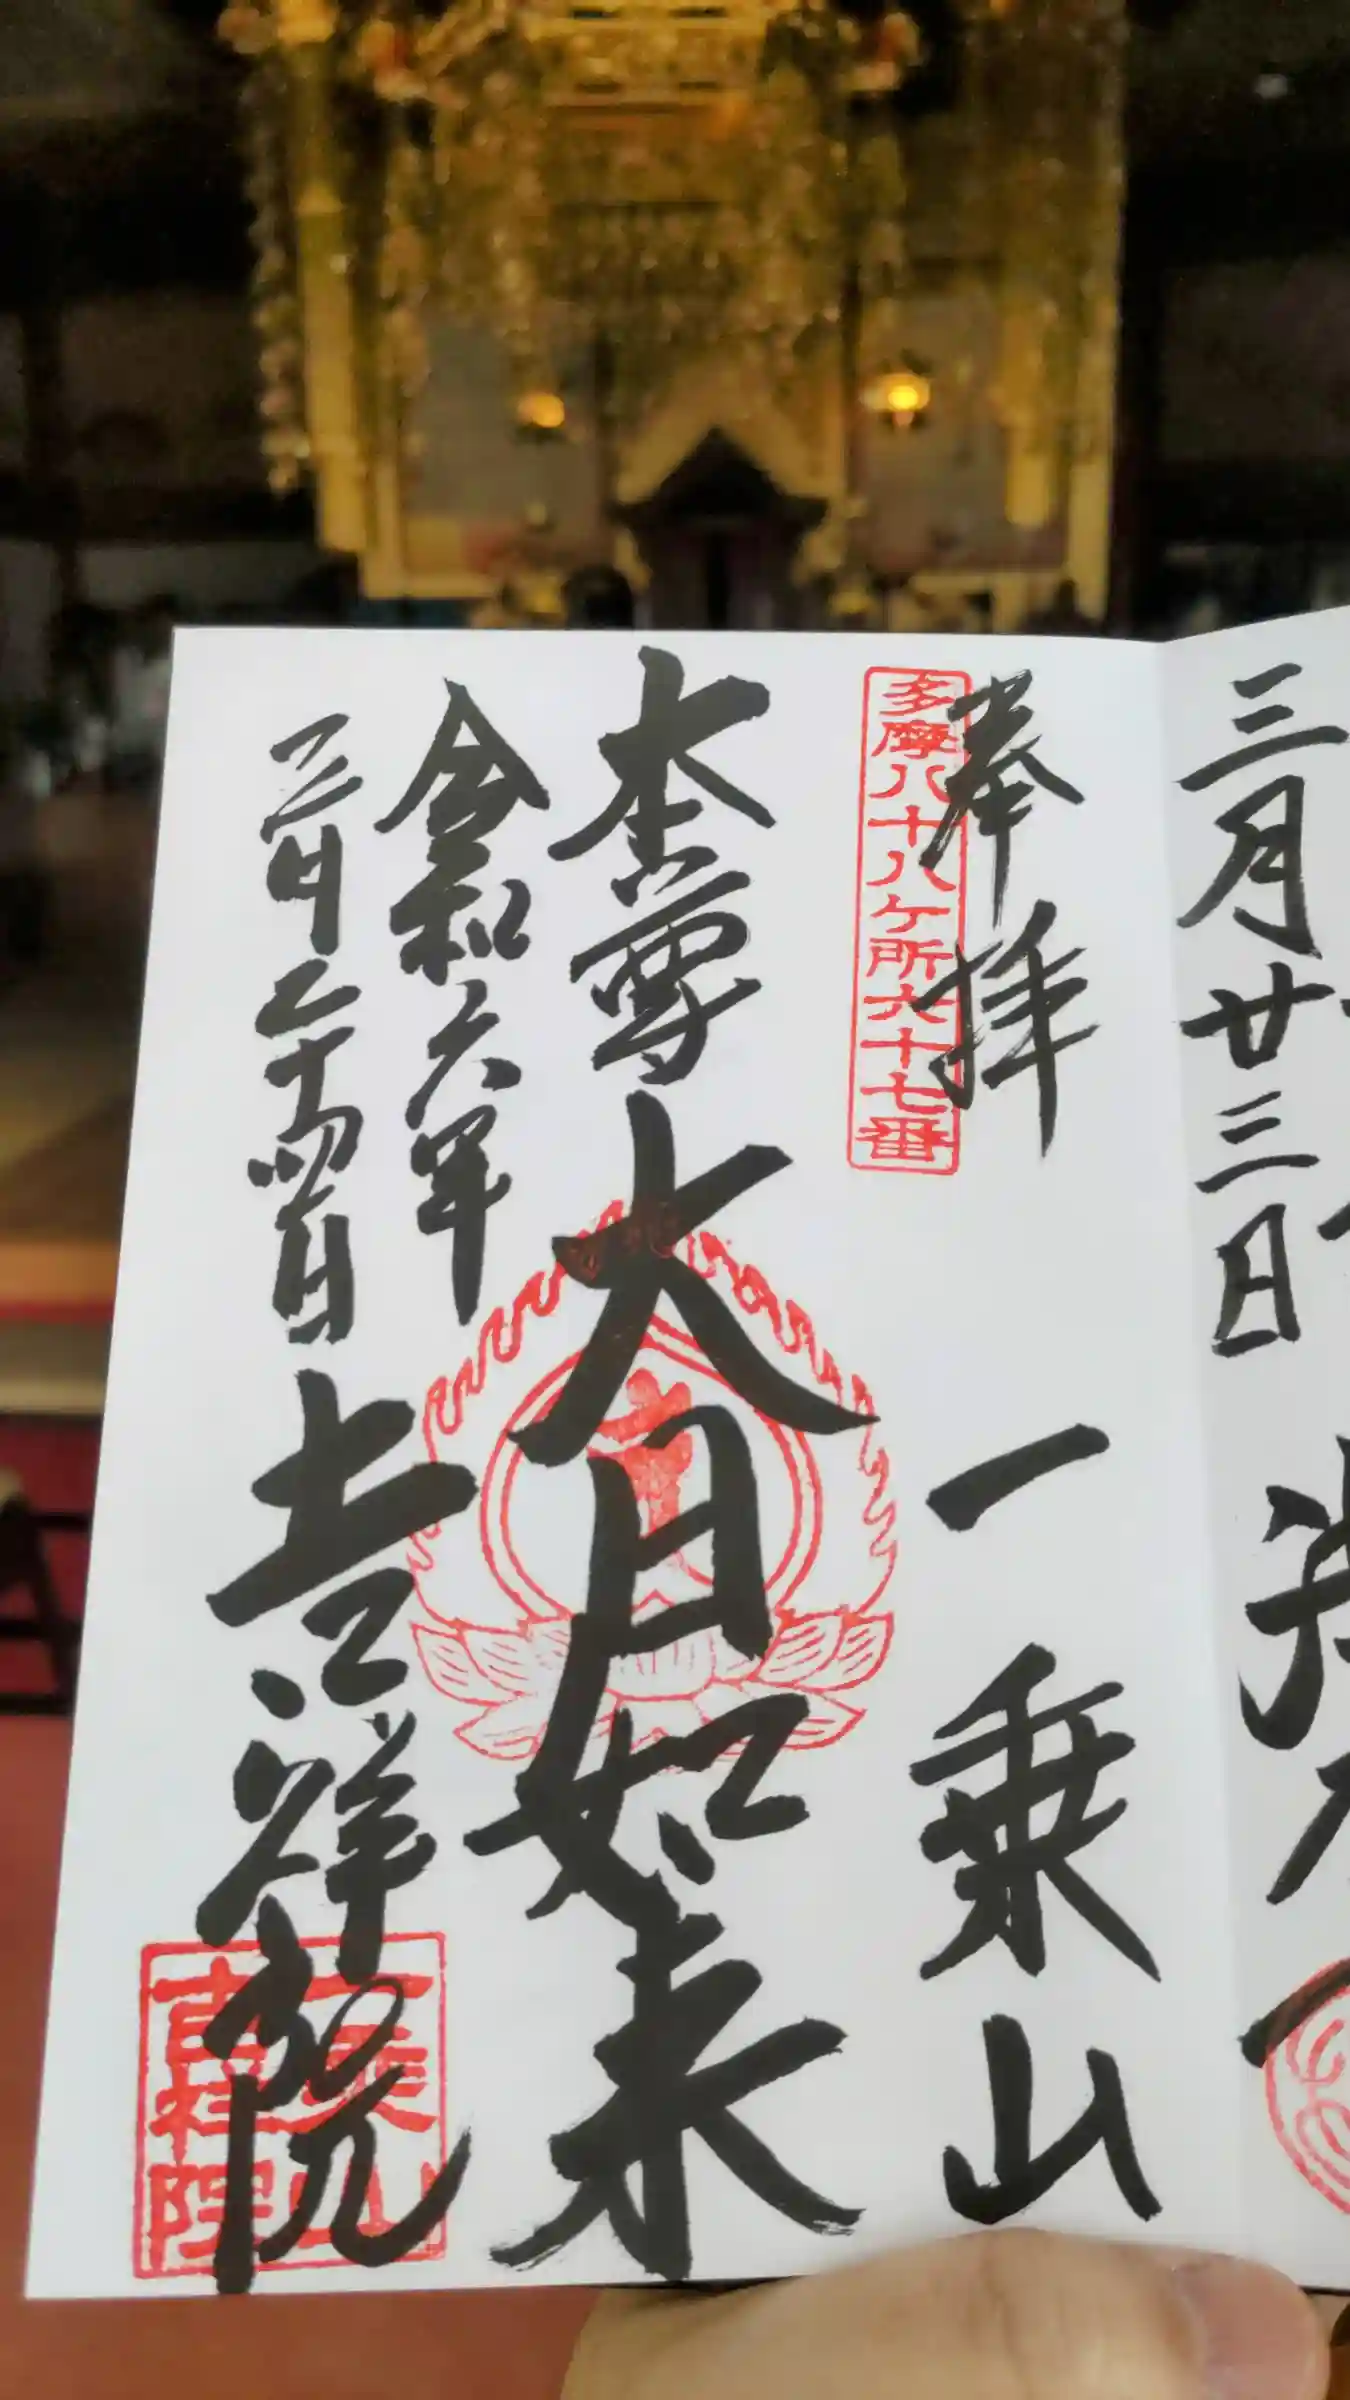 三月廿三日
奉拝
一乗山
多摩八十八ケ所六十七番
本尊
大日如来
令和六年
三月二十四日
吉祥院
一乗山
吉祥院